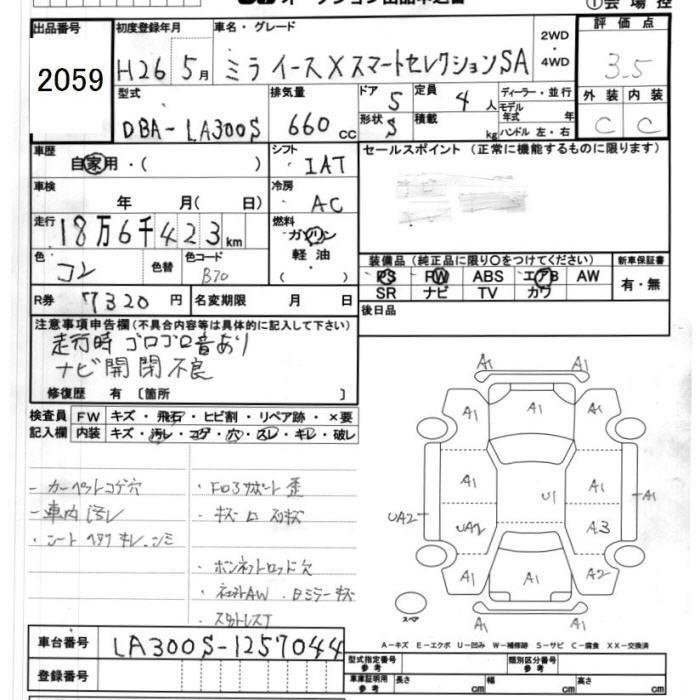 出品番号 初度登録年月 車名・グレード 2WD・4WD 評価点
2059 H26 5月 ミラ イース X スマートセレクション SA 3.5
型式 排気量 ドア 5 定員 4人 ディーラー・並行
外装 内装
モデル年式 年
DBA-LA300S 660cc 形状 S 積載 kg ハンドル 左・右 C C
車歴 自家用・( ) シフト IAT セールスポイント (正常に機能するものに限ります)
車検 年 月( 日) 冷房 AC
走行 18万6千423km 燃料 ガソリン
軽油
( )
色 コン 色替 色コード B70
装備品 (純正品に限り○をつけてください) 新車保証書
PS PW ABS エアB AW 有・無
SR ナビ TV カワ
R券 7320円 名変期限 月 日 後日品
注意事項申告欄 (不具合内容等は具体的に記入して下さい)
走行時 ゴロゴロ音あり
ナビ開閉不良
修復歴 有 〔箇所 〕
検査員記入欄 FW キズ・飛石・ヒビ割・リペア跡・×要
内装 キズ・汚レ・コゲ・穴・スレ・キレ・破レ
- カーペットコゲ穴
- 車内汚レ
- シート ヘタリ キレ シミ
・キズ
・ボンネットロッド欠
・社外AW
A1
A1 A1 A1
A1 U1 A1 A1
UA2 UA2 A3
A1 A1 A2
A1
スペア
A-キズ E-エクボ U-凹み W-補修跡 S-サビ C-腐食 XX-交換済
車台番号 LA300S-1257044
登録番号
型式指定番号 参考 類別区分番号 参考
車庫証明用 参考 長さ cm 幅 cm 高さ cm